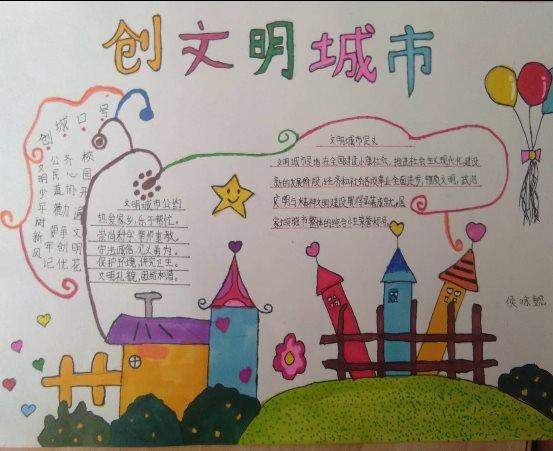 创文明城市
创城口号
文明少年树新风
公民道德要牢记
齐心协力争创优
校园开遍文明花
文明城市公约
热爱家乡,乐于帮忙。
崇尚科学,重教。
守法诚信,见义勇为。
保护环境,讲究卫生。
文明礼貌,团结和谐。
文明城市定义
文明城市是指在全面建设小康社会,推进社会主义现代化建设
新的发展阶段,经济和社会各项事业全面进步,物质文明,政治
文明与精神文明建设取得显著成就,是
城市整体的综合性荣誉称号。